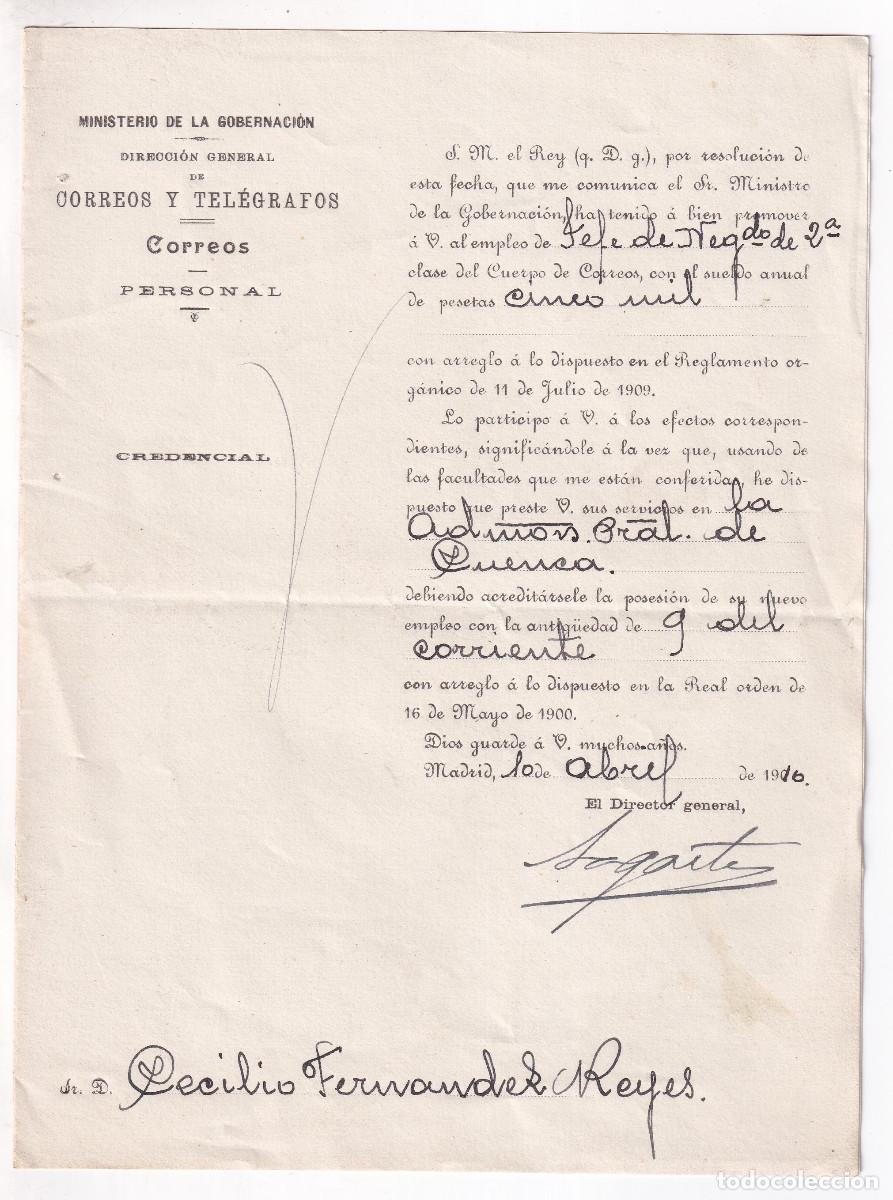 MINISTERIO DE LA GOBERNACIÓN
DIRECCIÓN GENERAL
DE
CORREOS Y TELÉGRAFOS
Correos
PERSONAL
CREDENCIAL
S. M. el Rey (q. D. g.), por resolución de
esta fecha, que me comunica el Sr. Ministro
de la Gobernación, ha tenido á bien promover
á V. al empleo de Jefe de Negdo de 2ª
clase del Cuerpo de Correos, con el sueldo anual
de pesetas cinco mil
con arreglo á lo dispuesto en el Reglamento or-
gánico de 11 de Julio de 1909.
Lo participo á V. á los efectos correspon-
dientes, significándole á la vez que, usando de
las facultades que me están conferidas, he dis-
puesto que preste V. sus servicios en la
Admon. Pral. de
Cuenca.
debiendo acreditársele la posesión de su nuevo
empleo con la antigüedad de 9 del
corriente
con arreglo á lo dispuesto en la Real orden de
16 de Mayo de 1900.
Dios guarde á V. muchos años.
Madrid, 10 de abril de 1910.
El Director general,
Sr. D. Cecilio Fernandez Reyes.
todocoleccion